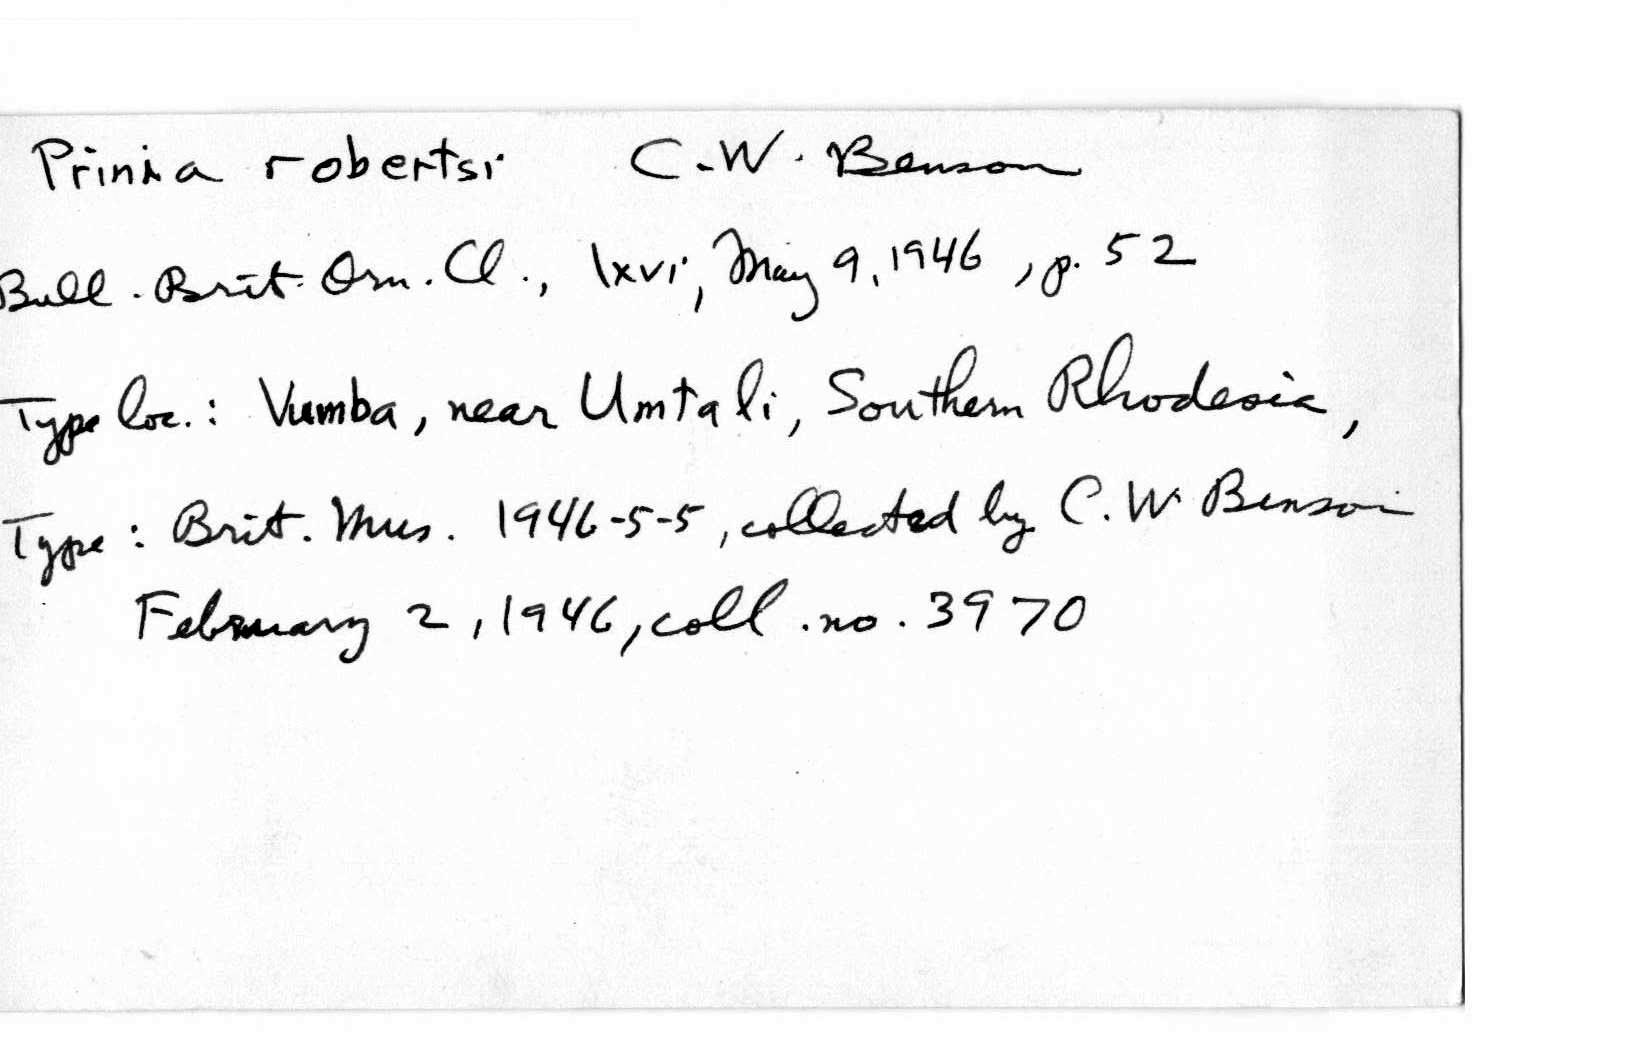 Prinia robertsi C.W. Benson
Bull. Brit. Orn. Cl., lxvi, May 9, 1946, p. 52
Type loc.: Vumba, near Umtali, Southern Rhodesia,
Type: Brit. Mus. 1946-5-5, collected by C.W. Benson
February 2, 1946, coll. no. 3970